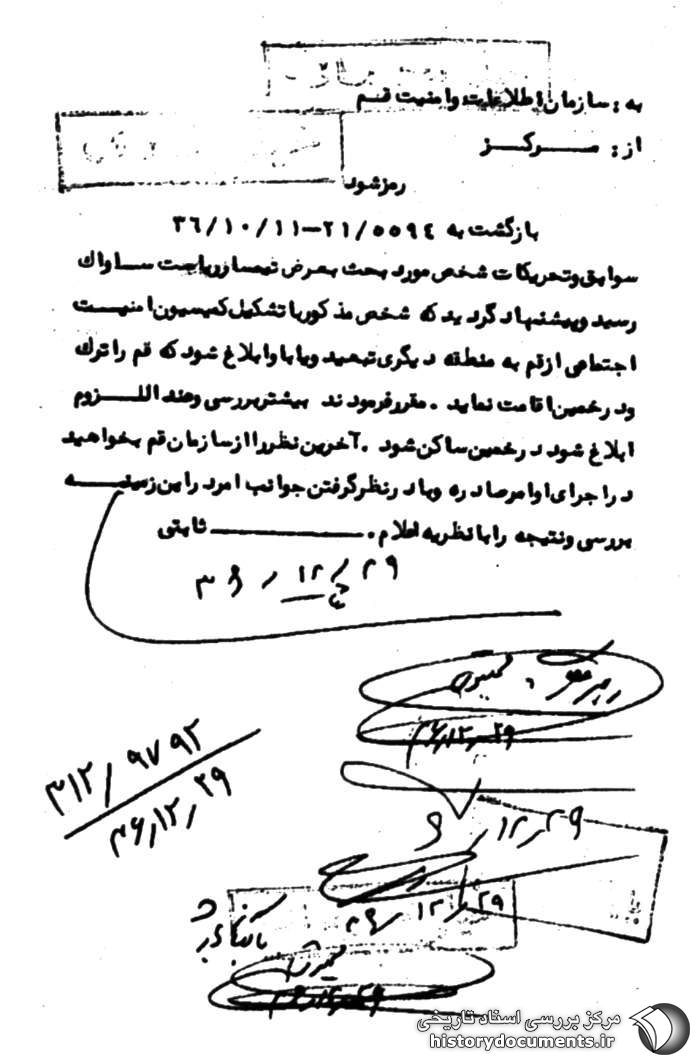 به: سازمان اطلاعات و امنیت قم
از: مرکز
رمز شود
بازگشت به ۲۱/۵۵۹٤-۳٦/۱۰/۱۱
سوابق و تحریکات شخص مورد بحث بعرض تیمسار ریاست ساواك
رسید و پیشنهاد گردید که شخص مذکور با تشکیل کمیسیون امنیت
اجتماعی از قم به منطقه دیگری تبعید و یا باو ابلاغ شود که قم را ترك
و در خمین اقامت نماید. مقرر فرمودند بیشتر بررسی و عند اللزوم
ابلاغ شود در خمین ساکن شود. آخرین نظر را از سازمان قم بخواهید
در اجرای اوامر صادره و با در نظر گرفتن جوانب امر در این زمینه
بررسی و نتیجه را با نظریه اعلام. ثابتی
۳۶/۱۲/۲۹
۳۶/۱۲/۲۹
۳۱۲/۹۷۹۲
۳۶/۱۲/۲۹
۱۲/۲۹
۳۶/۱۲/۲۹
بایگانی
۳۶/۱۲/۲۹
مرکز بررسی اسناد تاریخی
historydocuments.ir